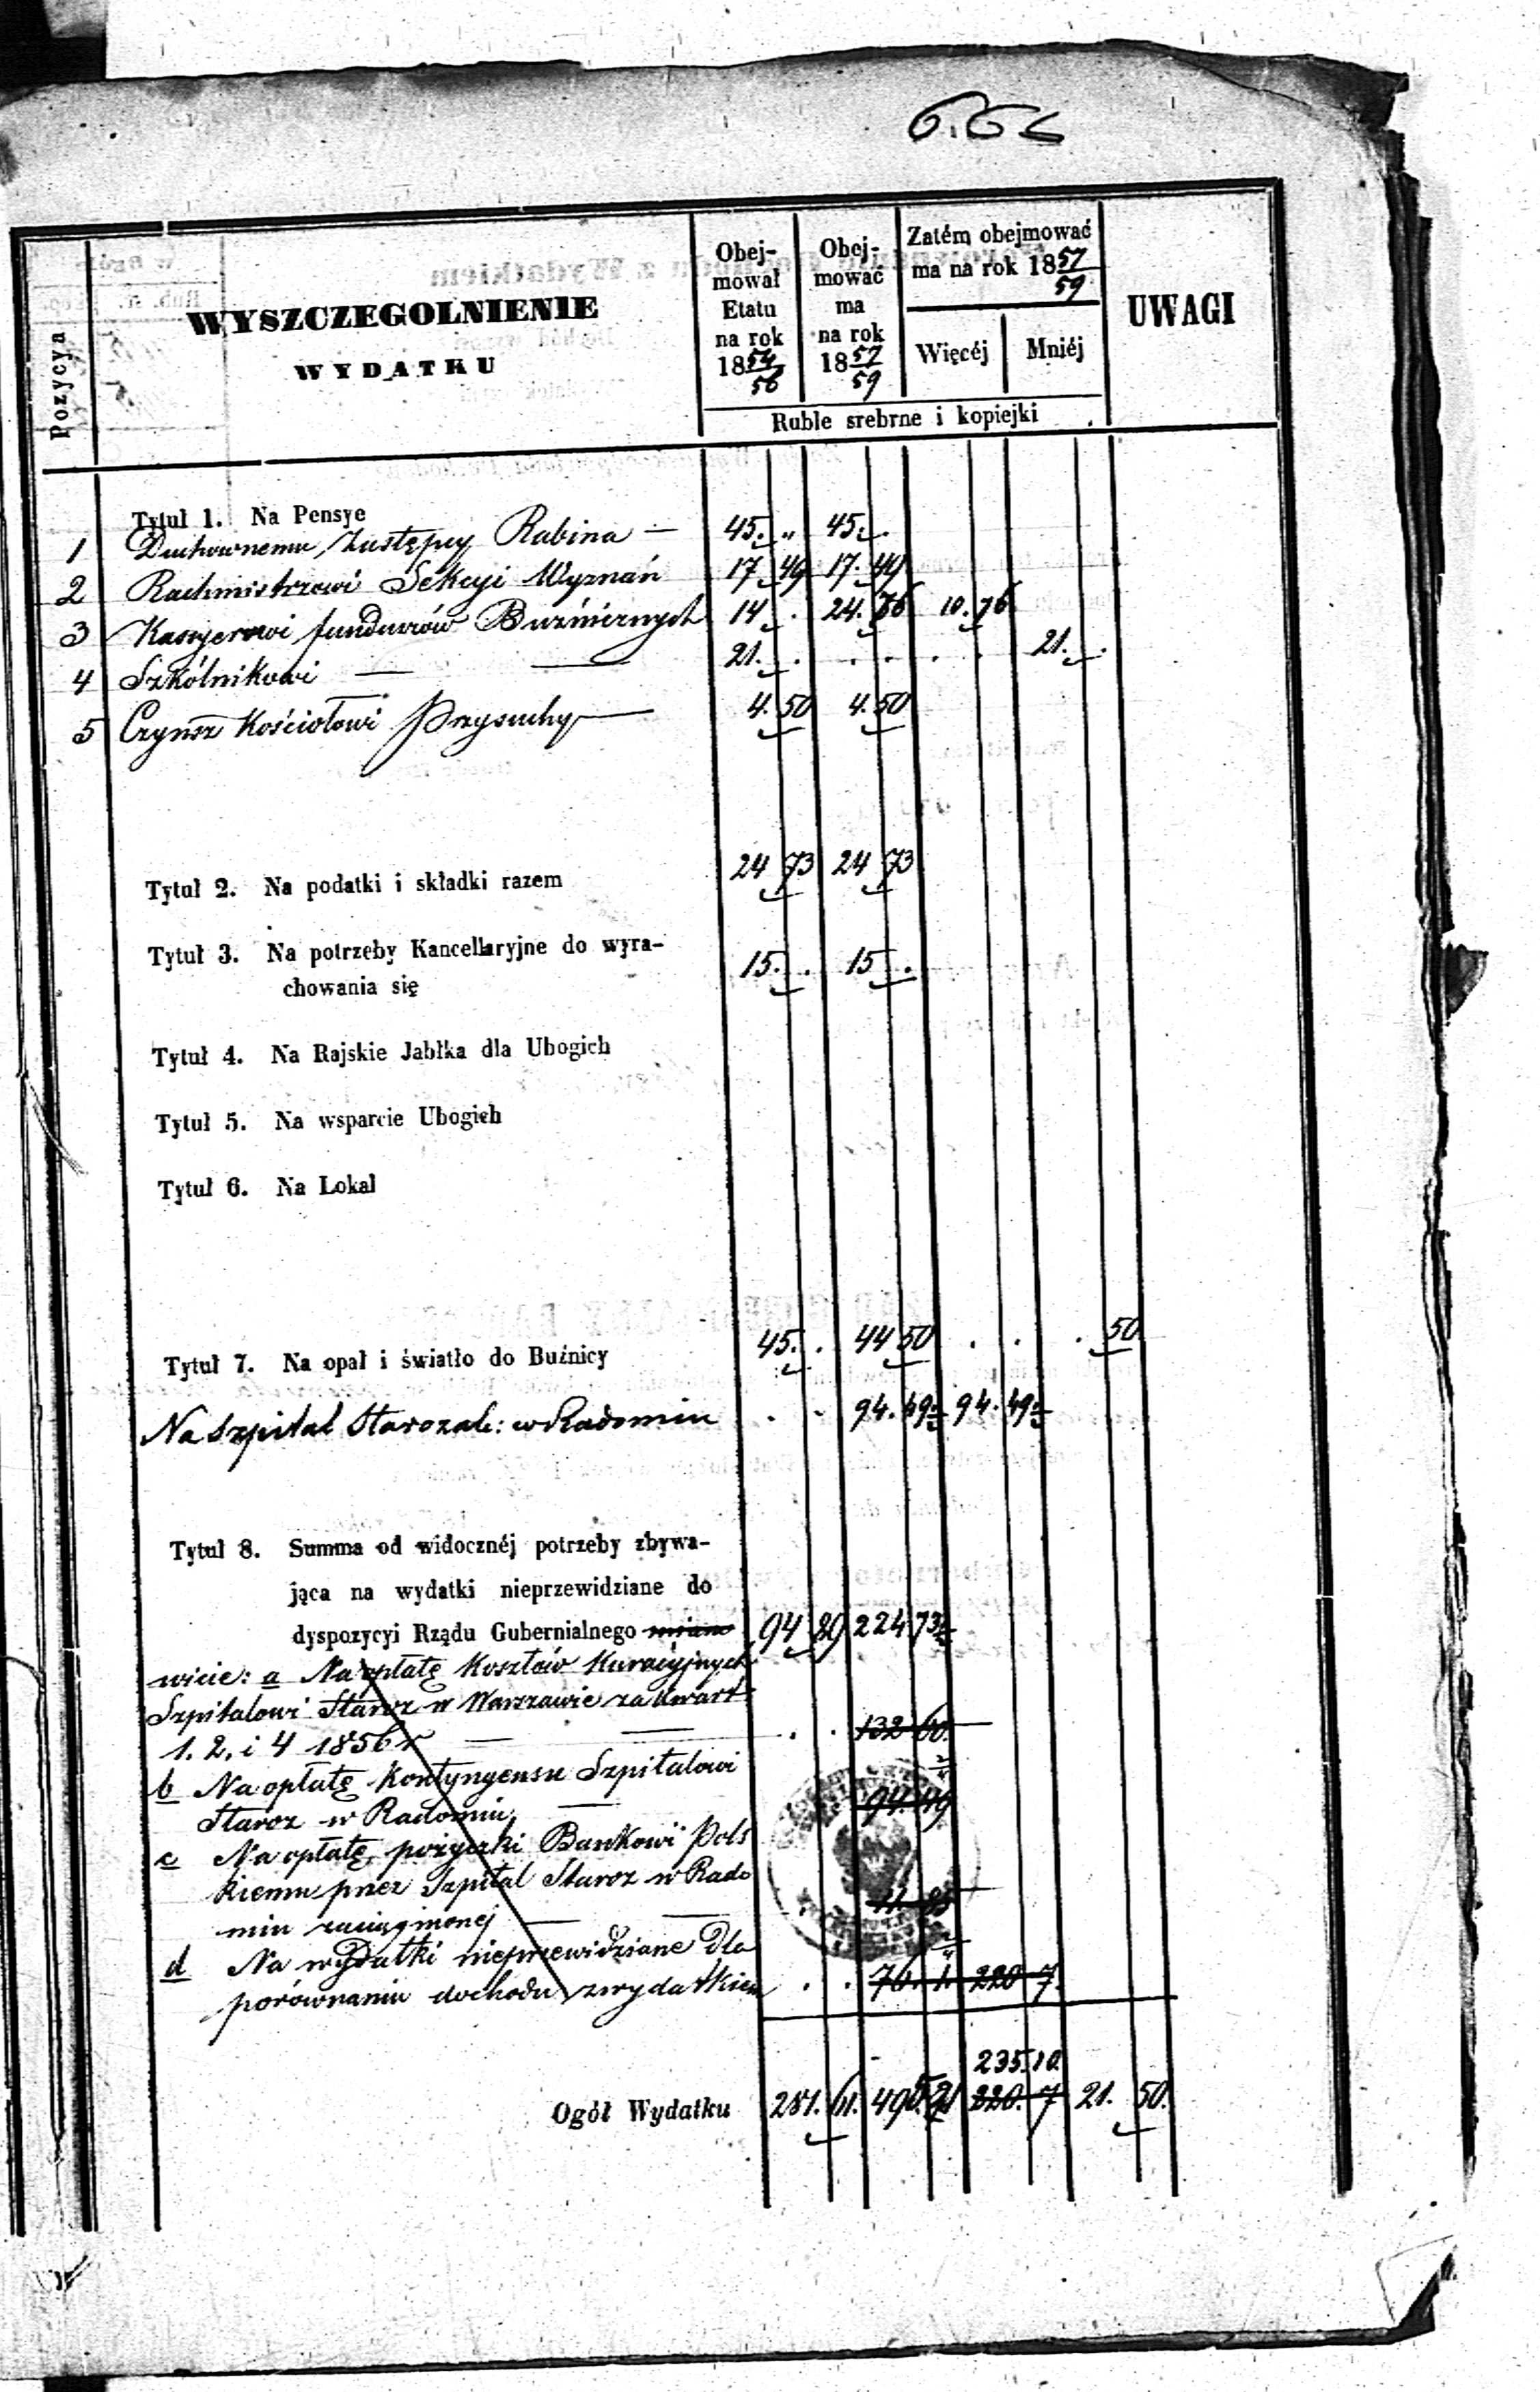 6.66
Pozycya
WYSZCZEGOLNIENIE
WYDATKU
Obej-
mował
Etatu
na rok
18 54/56
Obej-
mować
ma
na rok
18 57/59
Zatém obejmować
ma na rok 18 57/59
Więcéj Mniéj
UWAGI
Ruble srebrne i kopiejki
Tytuł 1. Na Pensye
1 Duchownemu Zastępcy Rabina — 45. „ 45. .
2 Rachmistrzowi Sekcyi Wyznań 17 49 17. 49
3 Kassyerowi funduszów Buźnicznych 14 . 24. 76 10. 76
4 Szkólnikowi — — 21. . . . . . 21. .
5 Czynsz Kościołowi Przysuchy — 4. 50 4. 50
Tytuł 2. Na podatki i składki razem 24 73 24 73
Tytuł 3. Na potrzeby Kancellaryjne do wyra-
chowania się 15. . 15 .
Tytuł 4. Na Rajskie Jabłka dla Ubogich
Tytuł 5. Na wsparcie Ubogich
Tytuł 6. Na Lokal
Tytuł 7. Na opał i światło do Buźnicy 45. . 44 50 . . . 50
Na szpital Starozak: w Radomiu . . 94. 49 94. 49
Tytuł 8. Summa od widocznéj potrzeby zbywa-
jąca na wydatki nieprzewidziane do
dyspozycyi Rządu Gubernialnego miano 94 89 224 73
wicie: a Na opłatę Kosztów Kuracyjnych
Szpitalowi Staroz w Warszawie za kwart:
1. 2, i 4 1856 r — — . . 132 60.
b Na opłatę Kontyngensu Szpitalowi
Staroz w Radomiu, — 94. 49
c Na opłatę pożyczki Bankowi Pols
kiemu przez Szpital Staroz w Rado
miu zaciągnionej — —
d Na wydatki nieprzewidziane dla
porównania dochodu z wydatkiem . . 76. 1. 220 7.
235. 10.
Ogół Wydatku 281. 61. 490. 21 220. 7 21. 50.